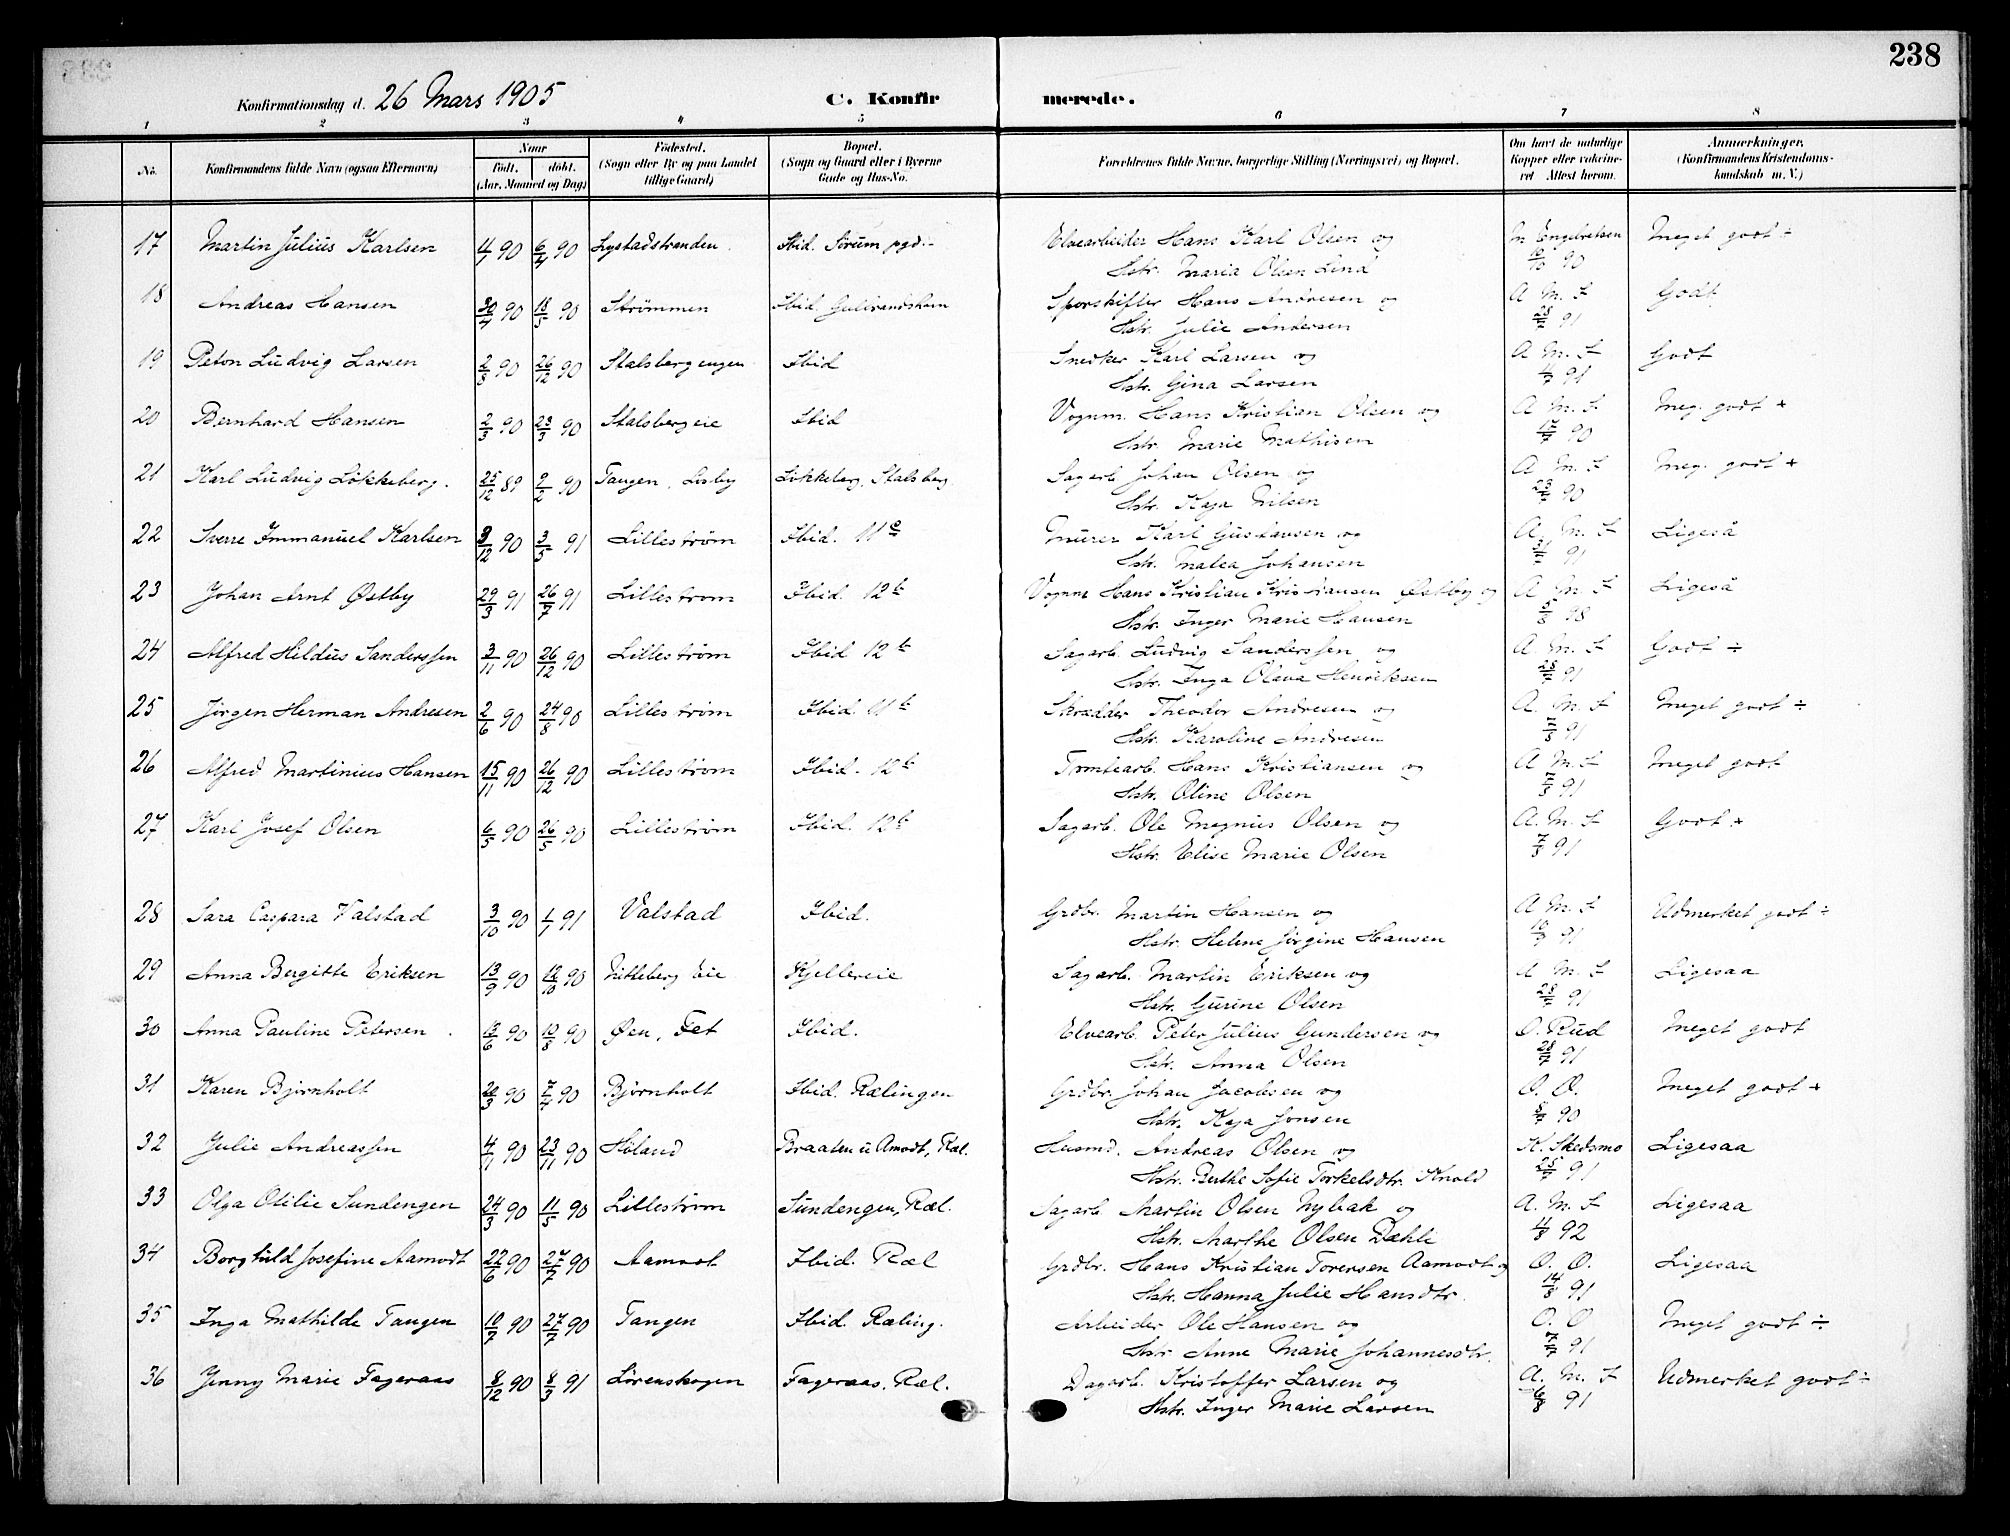 238
Konfirmationsdag d. 26 Mars 1905 C. Konfirmerede.
1 2 3 4 5 6 7 8
No. Konfirmandens fulde Navn (ogsaa Efternavn) Naar født. døbt. (Aar, Maaned og Dag) Fødested. (Sogn eller By og paa Landet tillige Gaard) Bopæl. (Sogn og Gaard eller i Byerne Gade og Hus-No. Forældrenes fulde Navne, borgerlige Stilling (Næringsvei) og Bopæl. Om havt de naturlige Kopper eller vakcineret. Attest herom. Anmærkninger. (Konfirmandens Kristendomskundskab m. V.)
17 Martin Julius Karlsen 4/1 90 6/4 90 Lystadstranden Ibid. Sørum pgd. Elvearbeider Hans Karl Olsen og M. Engebretsen Meget godt ÷
Hstr. Maria Olsen Lund 16/10 90
18 Andreas Hansen 30/4 90 18/5 90 Strømmen Ibid. Sporskifter Hans Andresen og A. M. F Godt
Hstr. Julie Andersen 91
19 Peton Ludvig Larsen 2/8 90 26/12 90 Stalsbergengen Ibid Snedker Karl Larsen og A. M. F Godt
Hstr. Gina Larsen 4/7 91
20 Bernhard Hansen 2/3 90 23/3 90 Stalsbergeie Ibid Vognm. Hans Kristian Olsen og A. M. F. Meg. godt +
Hstr. Marie Mathisen 17/7 90
21 Karl Ludvig Løkkeberg. 25/12 89 2/2 90 Tangen, Losby Løkkeberg, Stalsberg. Sagarb. Johan Olsen og A. M. F Meg. godt +
Hstr. Kaja Nilsen 90
22 Sverre Immanuel Karlsen 3/12 90 3/5 91 Lillestrøm Ibid. 11 Murer Karl Gustavsen og A. M. F Ligeså
Hstr. Malea Johansen 91
23 Johan Arnt Østby 29/3 91 26/7 91 Lillestrøm Ibid 12 b Vognm Hans Kristian Kristiansen Østby og A. M. F Ligeså
Hstr. Inger Marie Hansen 5/8 98
24 Alfred Hildus Sanderssen 3/11 90 26/12 90 Lillestrøm Ibid 12 b Sagarb. Ludvig Sanderssen og A. M. F Godt ÷
Hstr. Inga Olava Henriksen 91
25 Jørgen Herman Andresen 2/6 90 24/8 90 Lillestrøm Ibid. 11 b Skrædder Theodor Andresen og A. M. F Meget godt ÷
Hstr. Karoline Andresen 7/8 91
26 Alfred Martinius Hansen 15/11 90 26/12 90 Lillestrøm Ibid. 12 b Tomtearb. Hans Kristiansen og A. M. F Meget godt
Hstr. Oline Olsen 91
27 Karl Josef Olsen 6/5 90 26/5 90 Lillestrøm Ibid. 12 b Sagarb. Ole Magnus Olsen og A. M. F Godt. +
Hstr. Elise Marie Olsen 91
28 Sara Caspara Valstad 3/10 90 1/1 91 Valstad Ibid. Grdbr. Martin Hansen og A. M. F Udmerket godt ÷
Hstr. Helene Jørgine Hansen 91
29 Anna Bergitte Eriksen 13/9 90 12/10 90 Nitteberg Eie Kjellereie Sagarb. Martin Eriksen og A. M. F Ligesaa
Hstr. Gurine Olsen 91
30 Anna Pauline Petersen 90 10/8 90 Øen, Fet Ibid. Elvearb. Peter Julius Gundersen og O. Rud Meget godt
Hstr. Anna Olsen 28/7 91
31 Karen Bjørnholt 20/3 90 7/4 90 Bjørnholt Ibid. Rælingen Grdbr. Johan Jacobsen og O. O. Meget godt +
Hstr. Kaja Jonsen 90
32 Julie Andreassen 4/11 90 23/11 90 Høland Braaten u Amodt, Ræl. Husmd. Andreas Olsen og K. Skedsmo Ligesaa
Hstr. Berthe Sofie Torkelsdtr. Knold 25/7 91
33 Olga Otilie Sundengen 24/3 90 11/5 90 Lillestrøm Sundengen, Ræl. Sagarb Martin Olsen Nybak og A. M. F Ligesaa
Hstr. Marthe Olsen Dæhle 4/8 92
34 Borghild Josefine Aamodt 22/6 90 27/7 90 Aamodt Ibid. Ræl Grdbr. Hans Kristian Torersen Aamodt og O. O. Ligesaa
Hstr. Hanna Julie Hansdtr. 14/8 91
35 Inga Mathilde Tangen 10/7 90 27/7 90 Tangen Ibid. Ræling. Arbeider Ole Hansen og O. O Meget godt ÷
Hstr Anne Marie Johannesdtr. 7/7 91
36 Jenny Marie Fageraas 8/12 90 8/3 91 Lørenskogen Fageraas, Ræl. Dagarb. Kristoffer Larsen og A. M. F Udmerket godt ÷
Hstr. Inger Marie Larsen 6/8 91